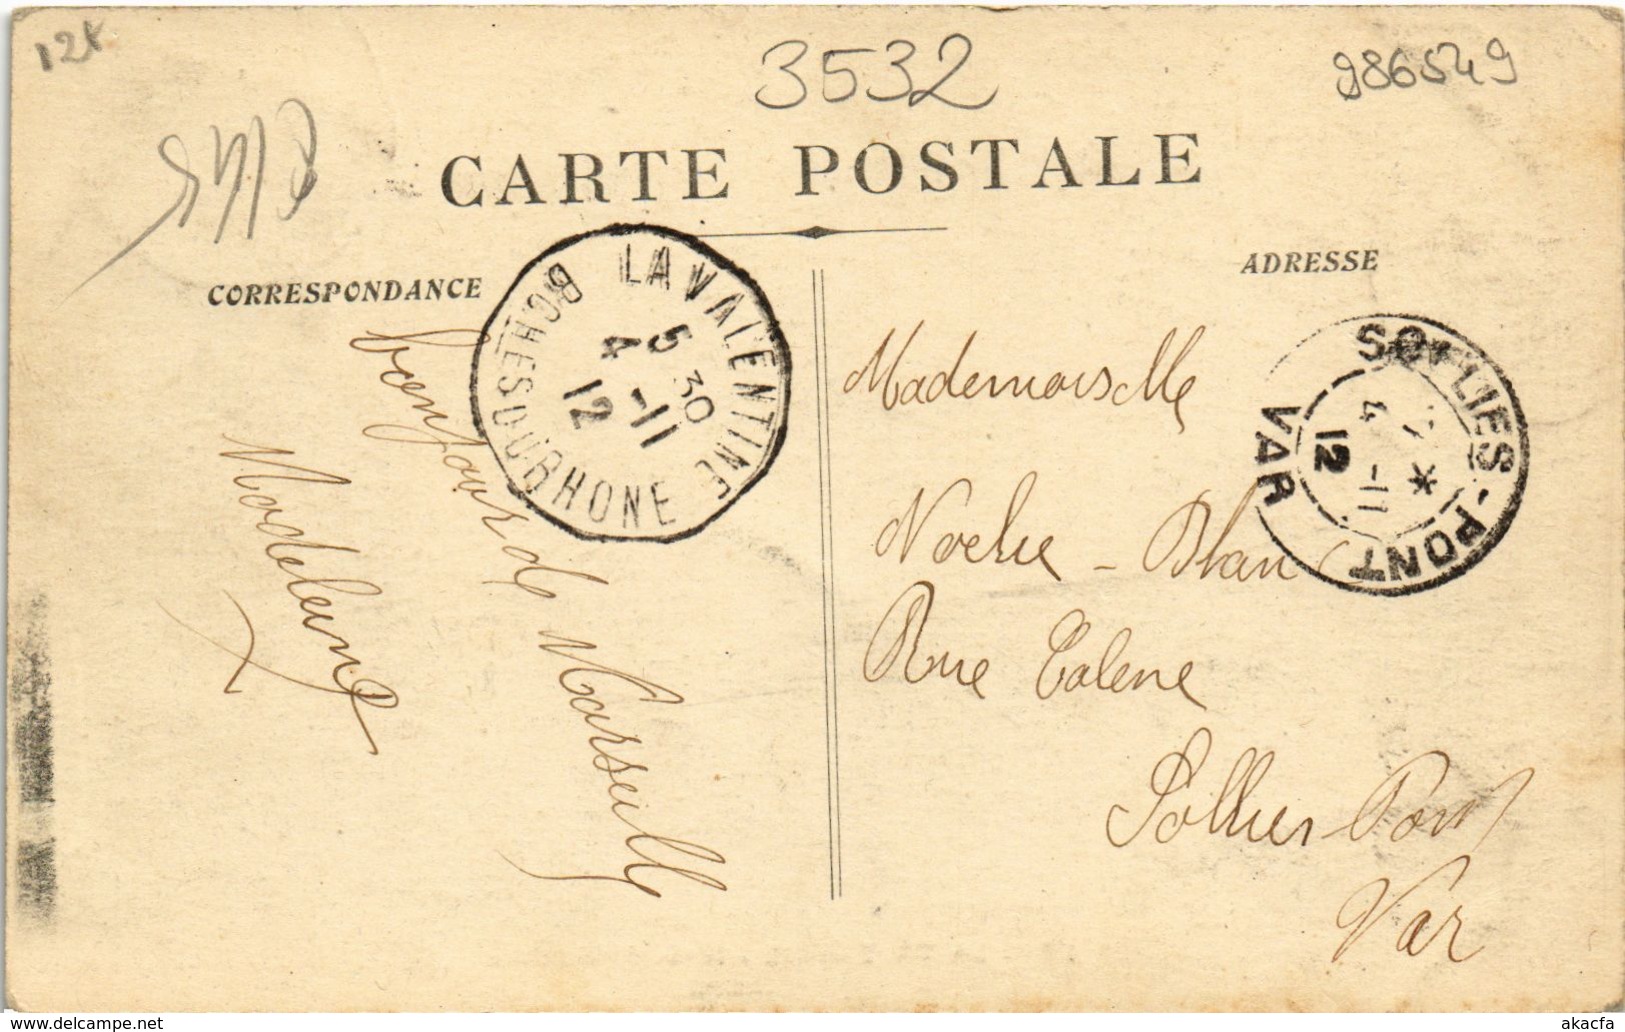 12x
3532
986549
CARTE POSTALE
CORRESPONDANCE
ADRESSE
LA VALENTINE
BCHES DU RHONE
5 30
4 -11
12
SOLLIES-PONT
VAR
4 -11
12
bonjour de Marseille
Madeleine
Mademoiselle
Blanc
Rue
Sollies Pont
Var
akacfa
www.delcampe.net